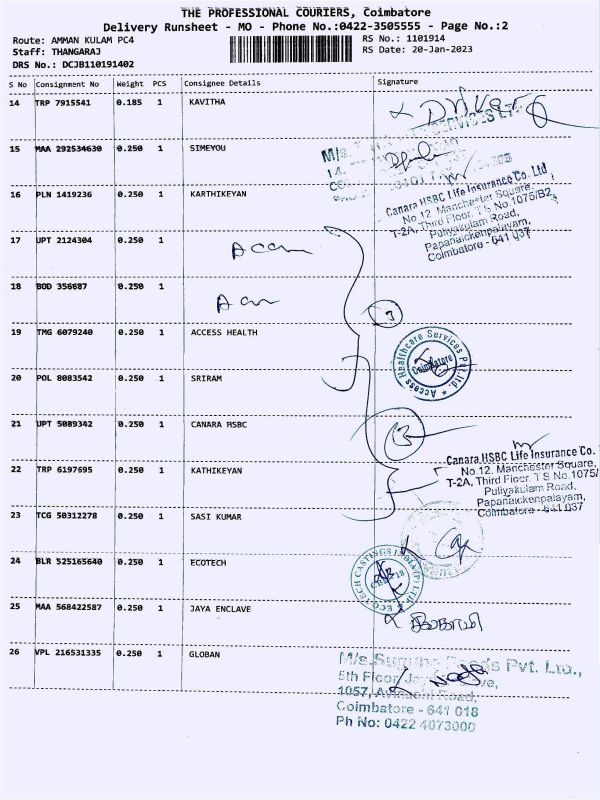 THE PROFESSIONAL COURIERS, Coimbatore
Delivery Runsheet - MO - Phone No.:0422-3505555 - Page No.:2
Route: AMMAN KULAM PC4 RS No.: 1101914
Staff: THANGARAJ RS Date: 20-Jan-2023
DRS No.: DCJB110191402
S No Consignment No Weight PCS Consignee Details Signature
14 TRP 7915541 0.185 1 KAVITHA
15 MAA 292534630 0.250 1 SIMEYOU
M/s.
16 PLN 1419236 0.250 1 KARTHIKEYAN
Canara HSBC Life Insurance Co. Ltd
No.12. Manchester Square,
T-2A, Third Floor, T S No.1075/B2,
Puliyakulam Road,
Papanaickenpalayam,
Coimbatore - 641 037
17 UPT 2124304 0.250 1
18 BOD 356687 0.250 1
3
19 TMG 6079240 0.250 1 ACCESS HEALTH
Access Healthcare Services Pvt.Ltd.
Coimbatore
20 POL 8083542 0.250 1 SRIRAM
21 UPT 5089342 0.250 1 CANARA HSBC
3
Canara HSBC Life Insurance Co.
No.12. Manchester Square,
T-2A, Third Floor, T S No.1075/
Puliyakulam Road,
Papanaickenpalayam,
Coimbatore - 641 037
22 TRP 6197695 0.250 1 KATHIKEYAN
23 TCG 50312278 0.250 1 SASI KUMAR
24 BLR 525165640 0.250 1 ECOTECH
ECOTECH CASTINGS INDIA (P) LTD
25 MAA 568422587 0.250 1 JAYA ENCLAVE
26 VPL 216531335 0.250 1 GLOBAN
M/s. Pvt. Ltd.,
5th Floor,
1057, Road,
Coimbatore - 641 018
Ph No: 0422 4073000